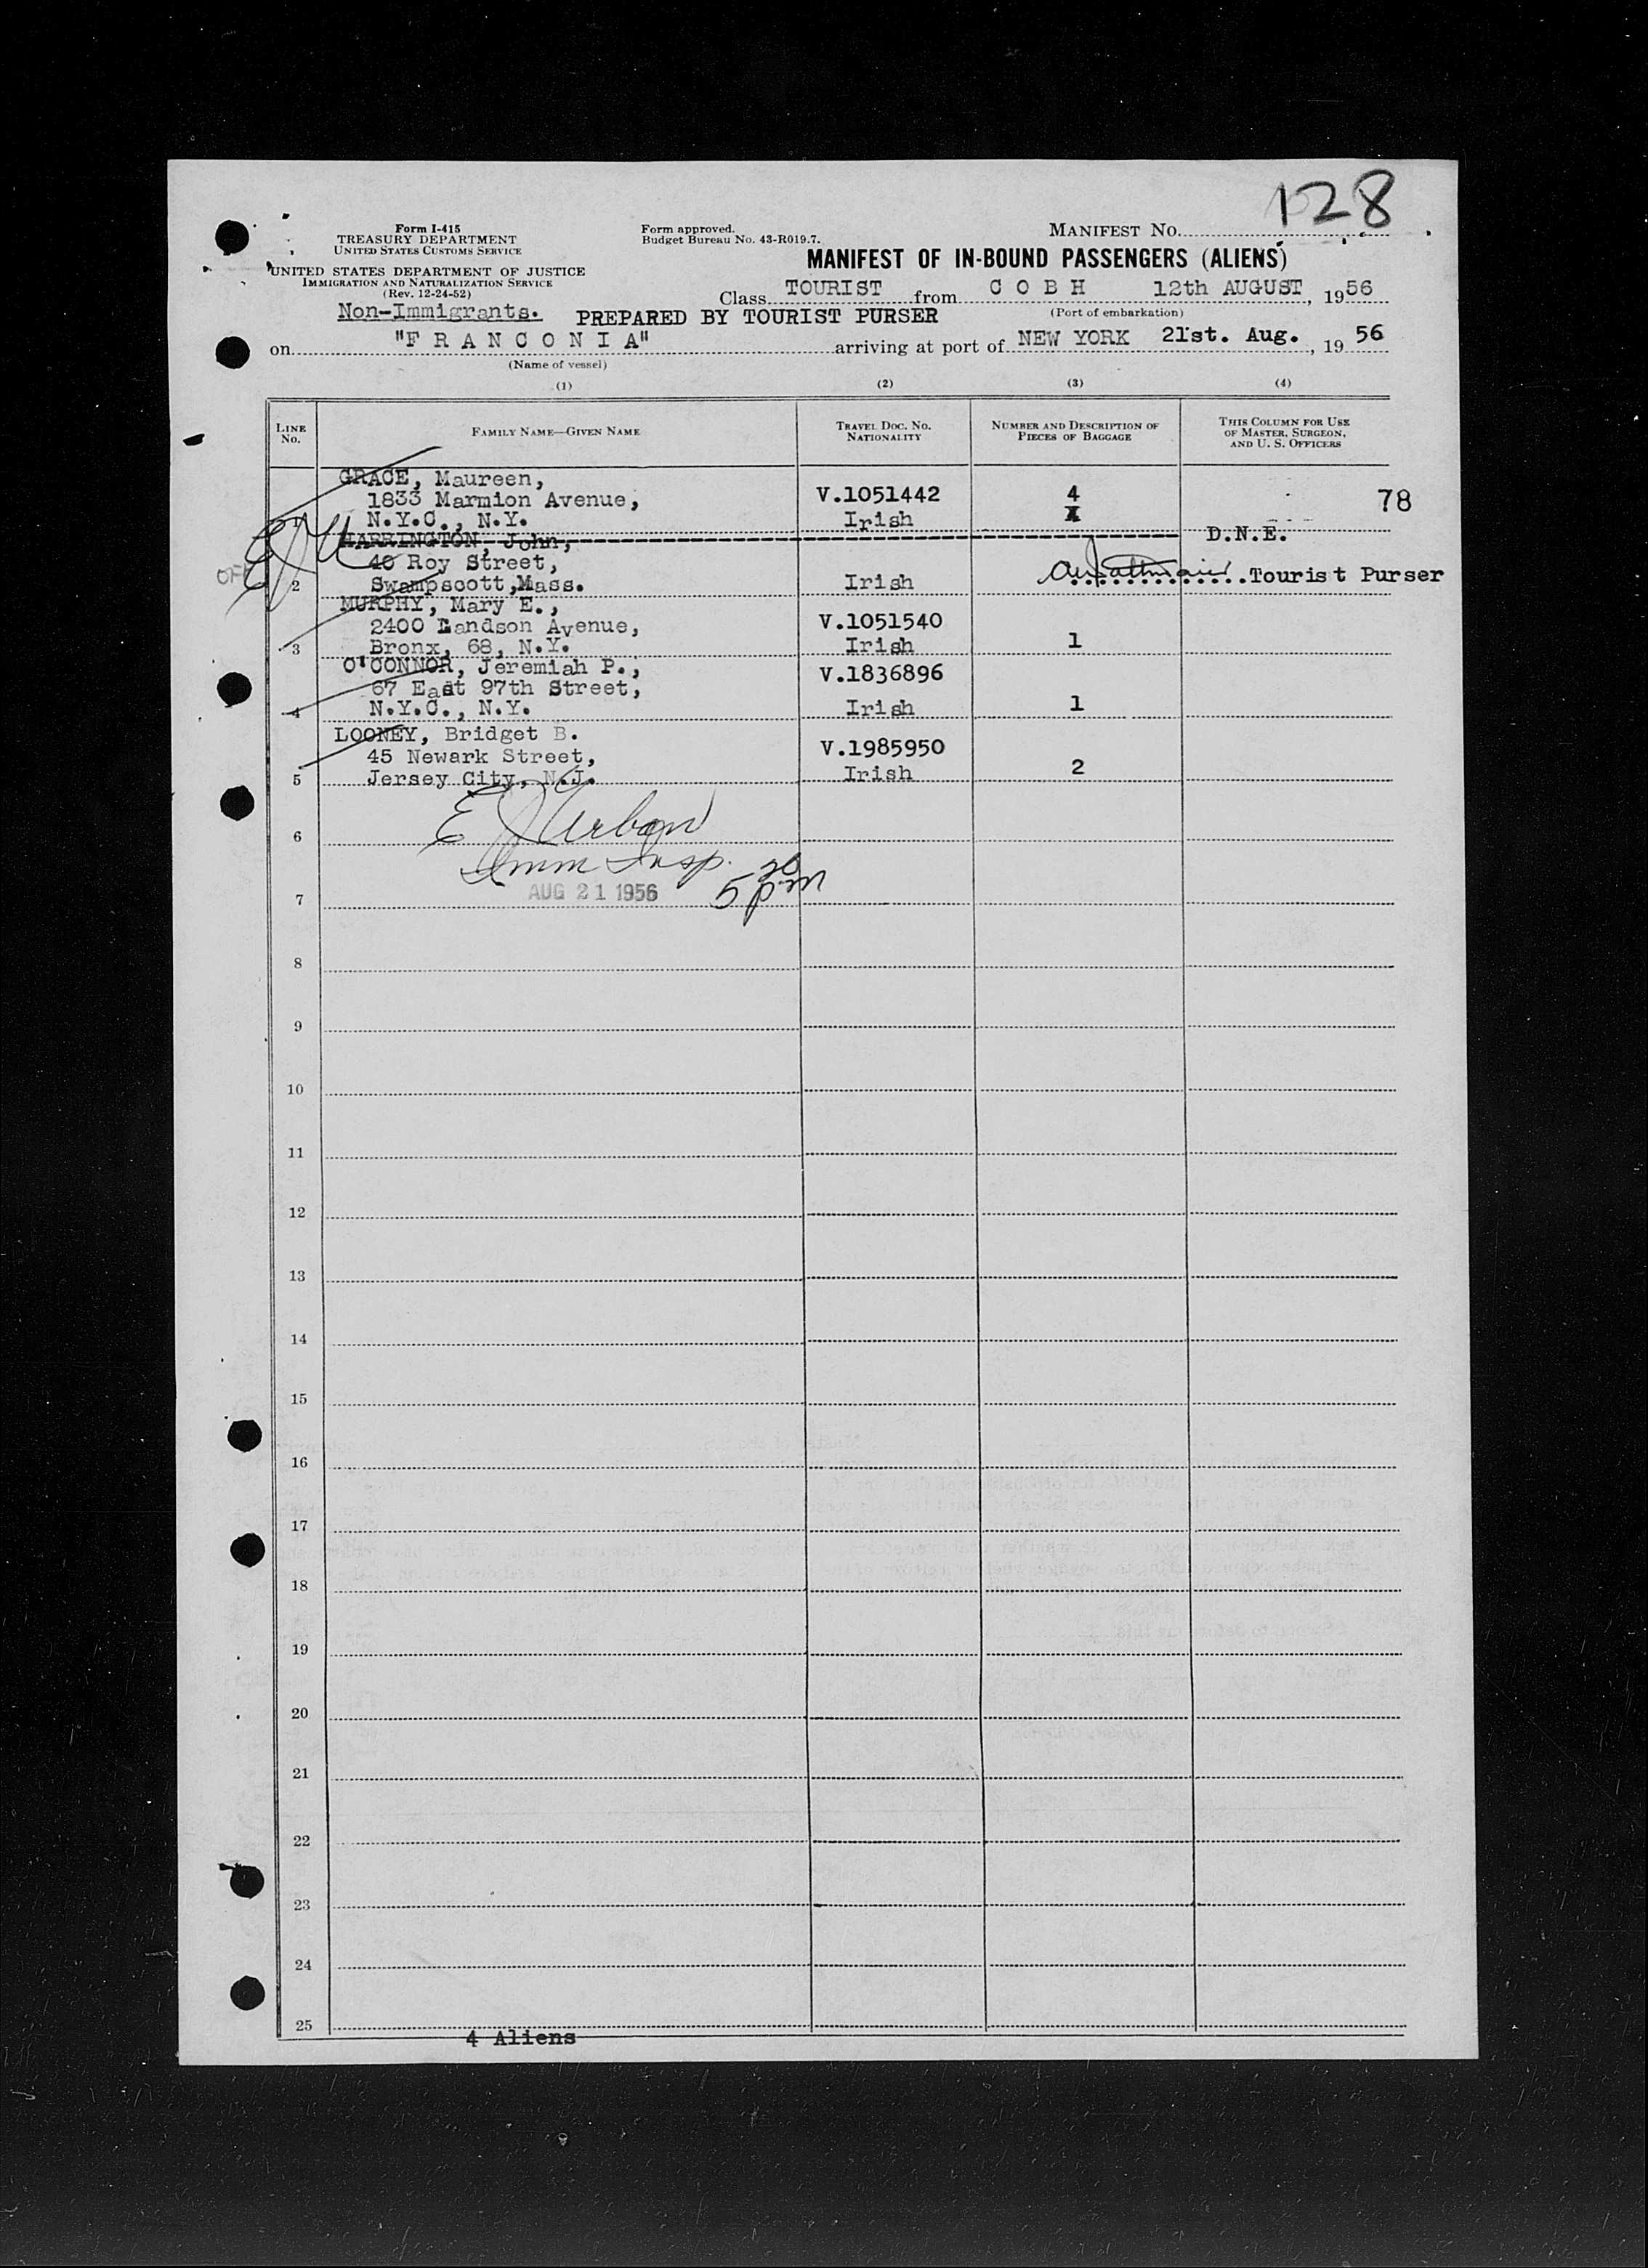 128
Form I-415
TREASURY DEPARTMENT
UNITED STATES CUSTOMS SERVICE
UNITED STATES DEPARTMENT OF JUSTICE
IMMIGRATION AND NATURALIZATION SERVICE
(Rev. 12-24-52)
Form approved.
Budget Bureau No. 43-R019.7.
MANIFEST NO.
MANIFEST OF IN-BOUND PASSENGERS (ALIENS)
Class TOURIST from C O B H 12th AUGUST, 1956
(Port of embarkation)
Non-Immigrants. PREPARED BY TOURIST PURSER
on "F R A N C O N I A" arriving at port of NEW YORK 21st. Aug., 19 56
(Name of vessel)
(1) (2) (3) (4)
LINE NO. FAMILY NAME—GIVEN NAME TRAVEL DOC. NO. NATIONALITY NUMBER AND DESCRIPTION OF PIECES OF BAGGAGE THIS COLUMN FOR USE OF MASTER, SURGEON, AND U. S. OFFICERS
GRACE, Maureen,
1833 Marmion Avenue, V.1051442 4 78
1 N.Y.C., N.Y. Irish
HARRINGTON, John, D.N.E.
40 Roy Street,
OFF 2 Swampscott, Mass. Irish Tourist Purser
MURPHY, Mary E.,
2400 Landson Avenue, V.1051540
3 Bronx, 68, N.Y. Irish 1
O'CONNOR, Jeremiah P., V.1836896
67 East 97th Street,
4 N.Y.C., N.Y. Irish 1
LOONEY, Bridget B.
45 Newark Street, V.1985950
5 Jersey City, N.J. Irish 2
E J Urban
6
Imm Insp.
7 AUG 21 1956 5 20 pm
8
9
10
11
12
13
14
15
16
17
18
19
20
21
22
23
24
25
4 Aliens